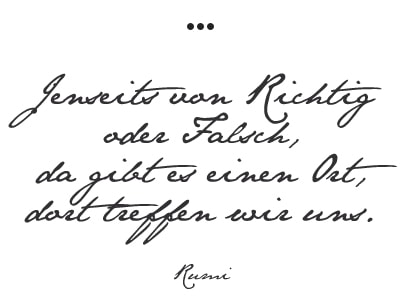 •••
Jenseits von Richtig
oder Falsch,
da gibt es einen Ort,
dort treffen wir uns.
Rumi